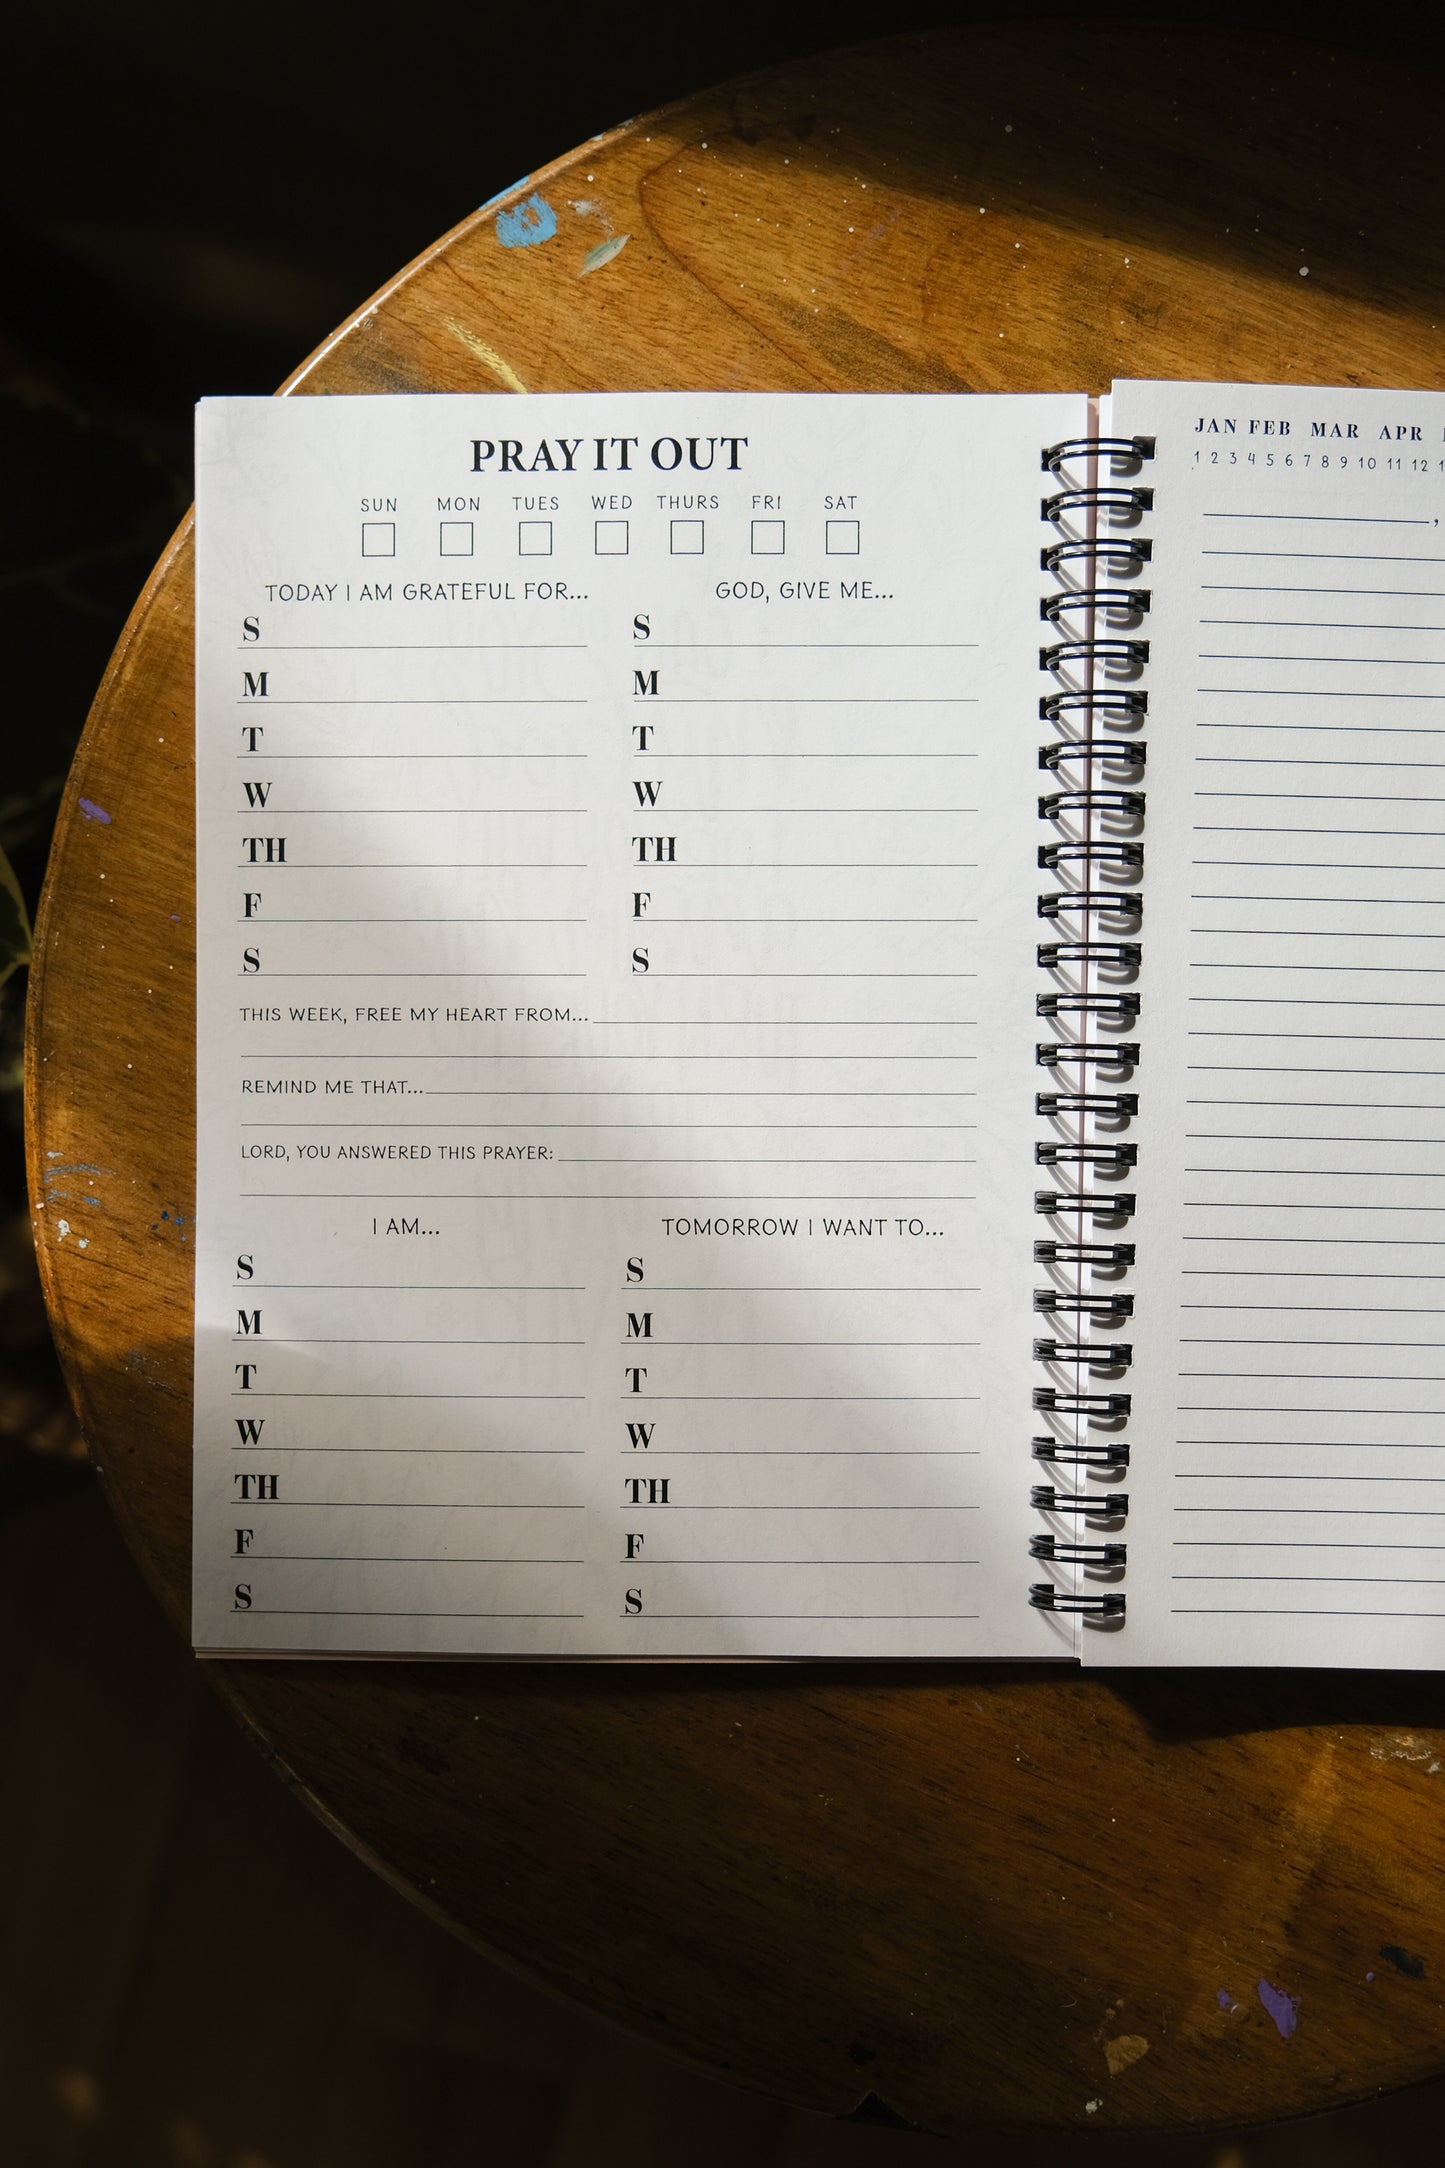 PRAY IT OUT
SUN MON TUES WED THURS FRI SAT
TODAY I AM GRATEFUL FOR...
S
M
T
W
TH
F
S
GOD, GIVE ME...
S
M
T
W
TH
F
S
THIS WEEK, FREE MY HEART FROM...
REMIND ME THAT...
LORD, YOU ANSWERED THIS PRAYER:
I AM...
S
M
T
W
TH
F
S
TOMORROW I WANT TO...
S
M
T
W
TH
F
S
JAN FEB MAR APR
1 2 3 4 5 6 7 8 9 10 11 12
,